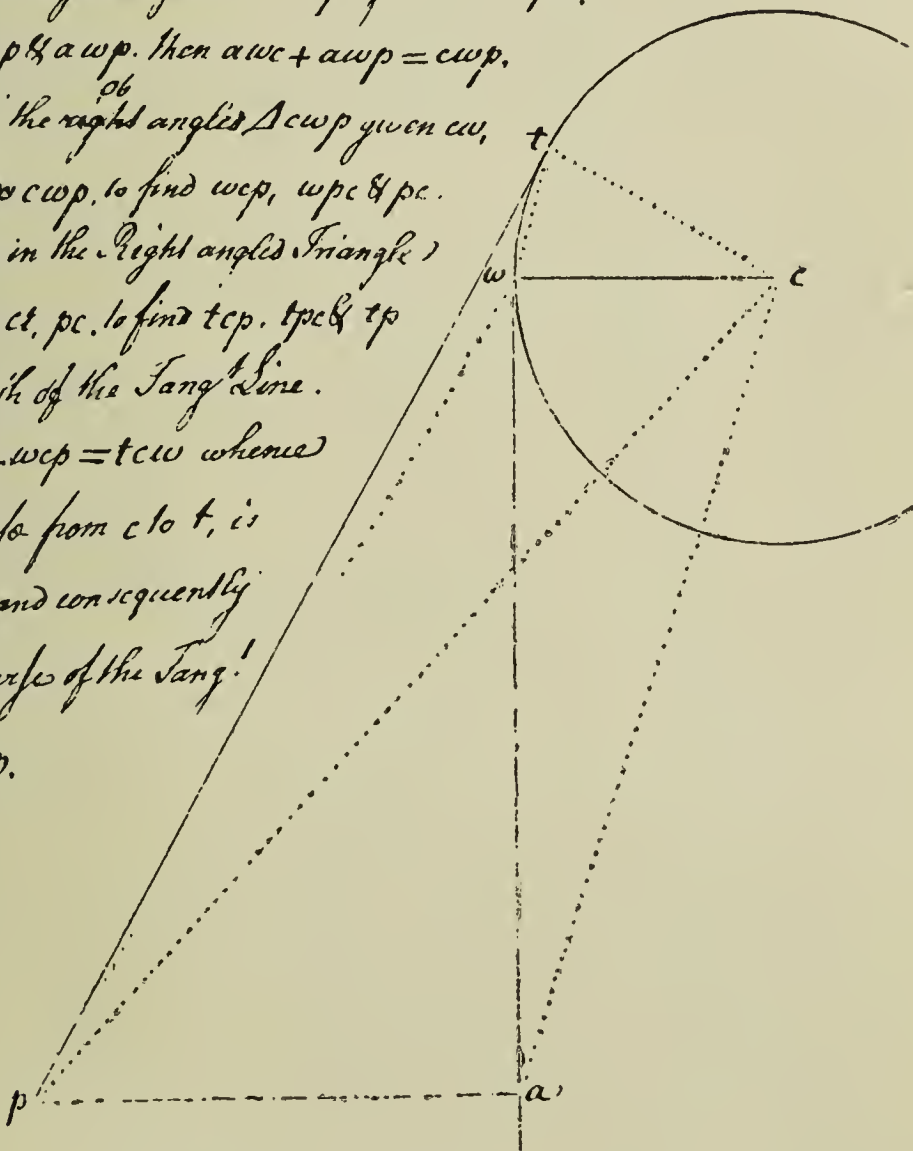 p & awp. then awc + awp = cwp.
ob
the right angled Δ cwp given cw,
cwp, to find wcp, wpc & pc.
in the Right angled Triangle
ct, pc, to find tcp. tpc & tp
of the Tangt Line.
wcp = tcw whence
from c to t, is
and consequently
of the Tangt
p.
t
w
c
p
a